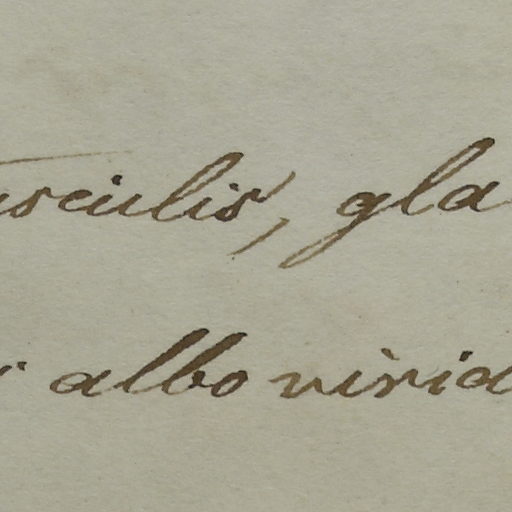 usciulis, gla
albo virid